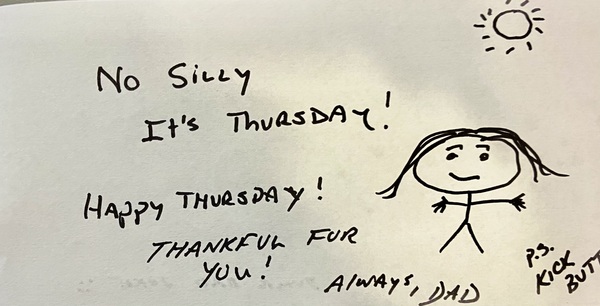 No Silly
It's Thursday!
Happy Thursday!
Thankful Fur
You!
Always, Dad
P.S.
Kick
Butt